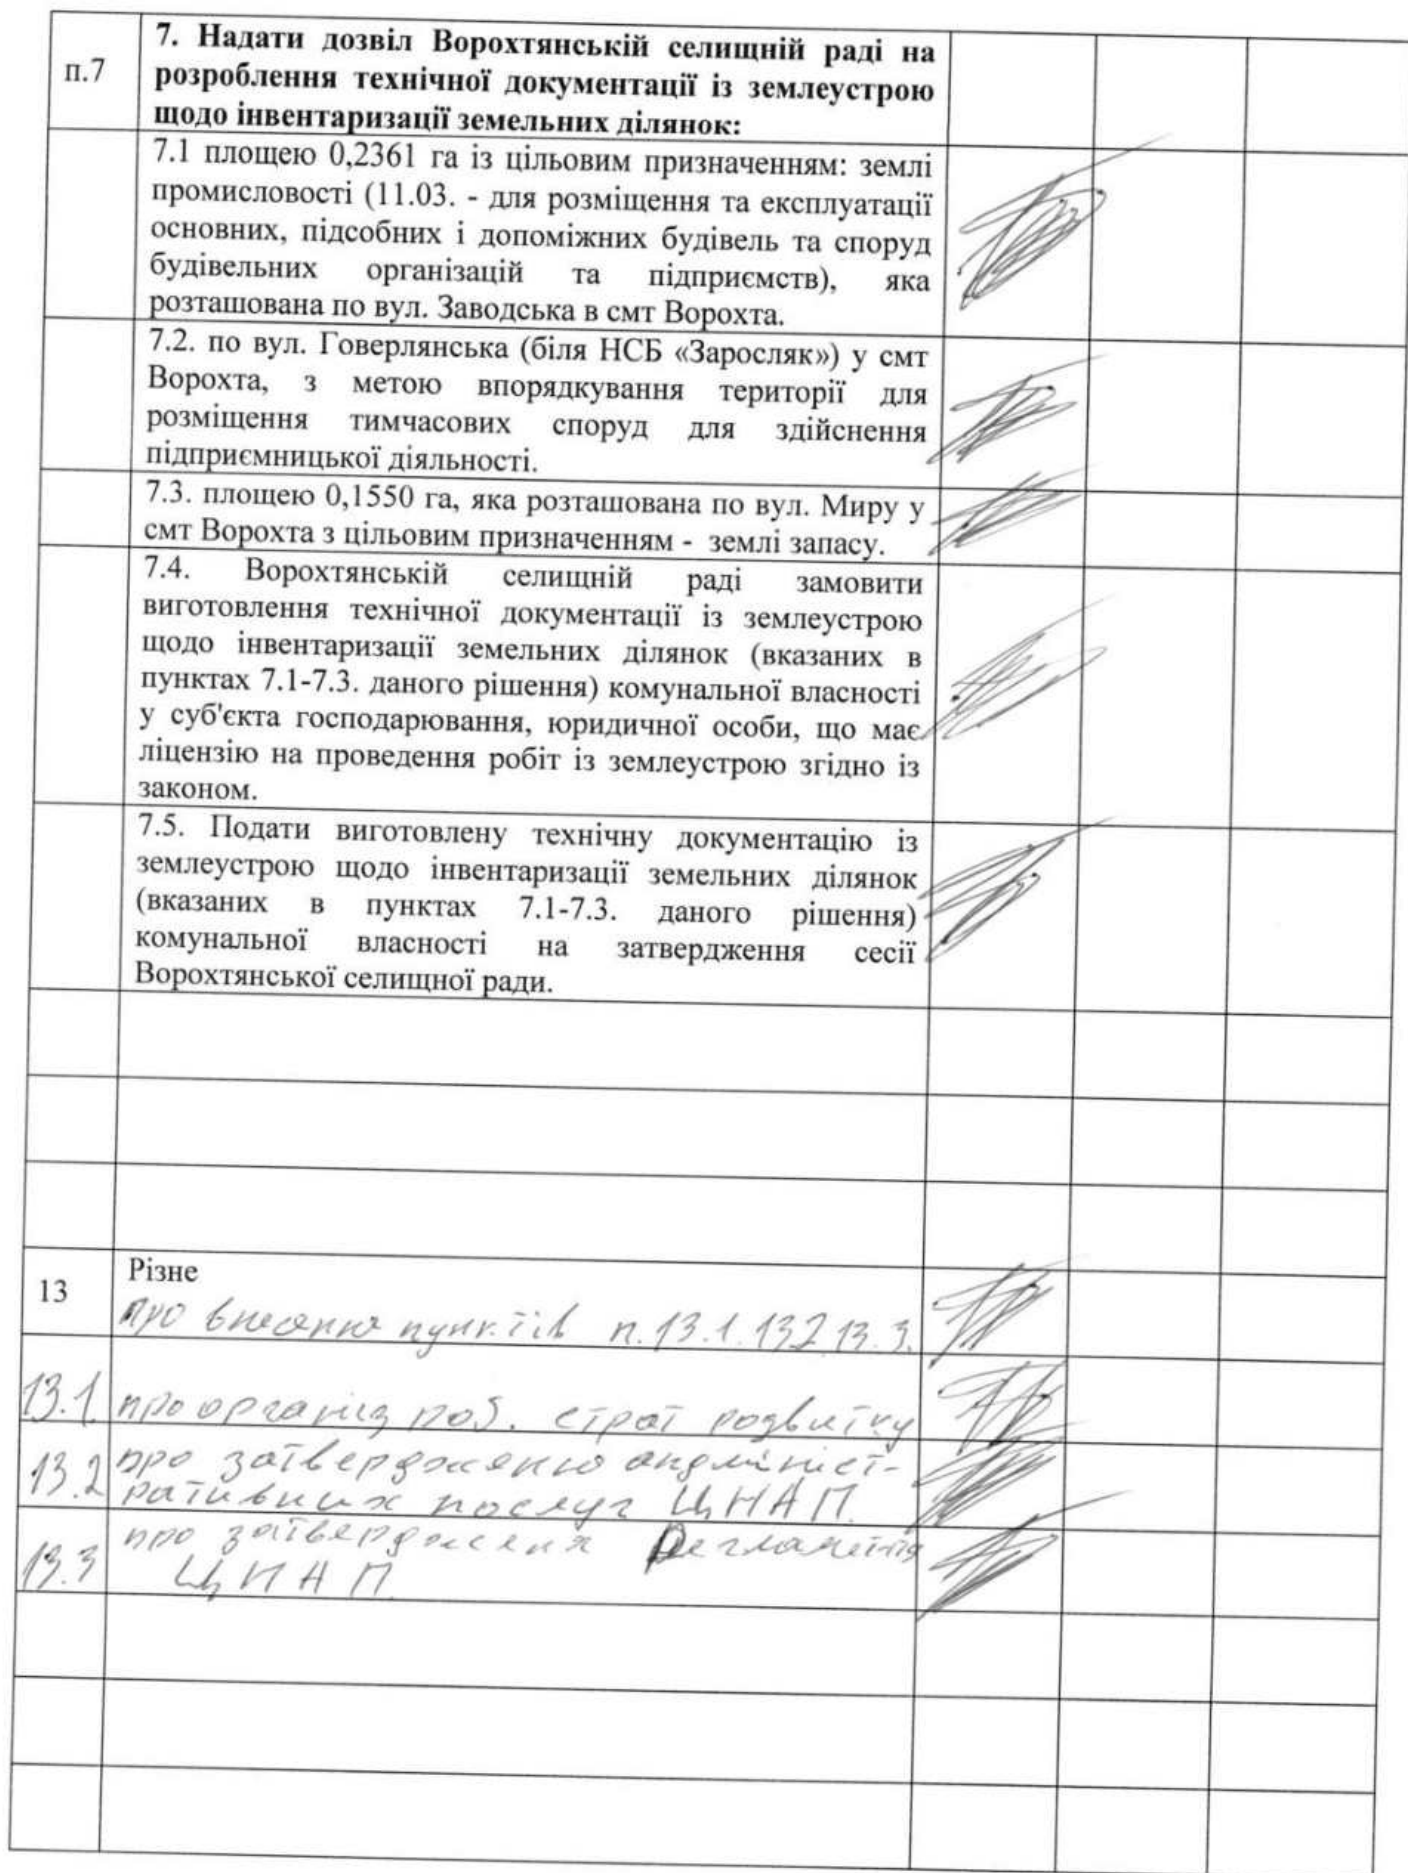 п.7
7. Надати дозвіл Ворохтянській селищній раді на
розроблення технічної документації із землеустрою
щодо інвентаризації земельних ділянок:
7.1 площею 0,2361 га із цільовим призначенням: землі
промисловості (11.03. - для розміщення та експлуатації
основних, підсобних і допоміжних будівель та споруд
будівельних організацій та підприємств), яка
розташована по вул. Заводська в смт Ворохта.
7.2. по вул. Говерлянська (біля НСБ «Заросляк») у смт
Ворохта, з метою впорядкування території для
розміщення тимчасових споруд для здійснення
підприємницької діяльності.
7.3. площею 0,1550 га, яка розташована по вул. Миру у
смт Ворохта з цільовим призначенням - землі запасу.
7.4. Ворохтянській селищній раді замовити
виготовлення технічної документації із землеустрою
щодо інвентаризації земельних ділянок (вказаних в
пунктах 7.1-7.3. даного рішення) комунальної власності
у суб'єкта господарювання, юридичної особи, що має
ліцензію на проведення робіт із землеустрою згідно із
законом.
7.5. Подати виготовлену технічну документацію із
землеустрою щодо інвентаризації земельних ділянок
(вказаних в пунктах 7.1-7.3. даного рішення)
комунальної власності на затвердження сесії
Ворохтянської селищної ради.
13
Різне
про внесення пунктів п.13.1.13.2 13.3.
13.1 про організ роб. страт розвитку
13.2 про затвердження андмініст-
ративних послуг ЦНАП.
13.3 про затвердженя Регламентів
ЦНАП.